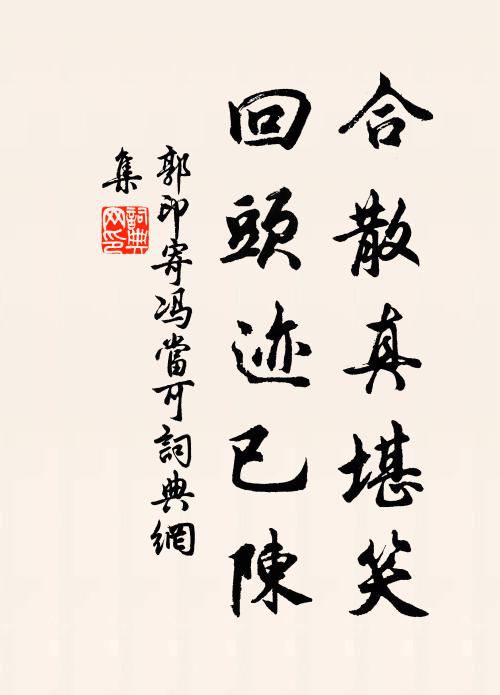 合散真堪笑
回頭迹已陳
郭印寄冯當可詞典網
集
詞典
网印